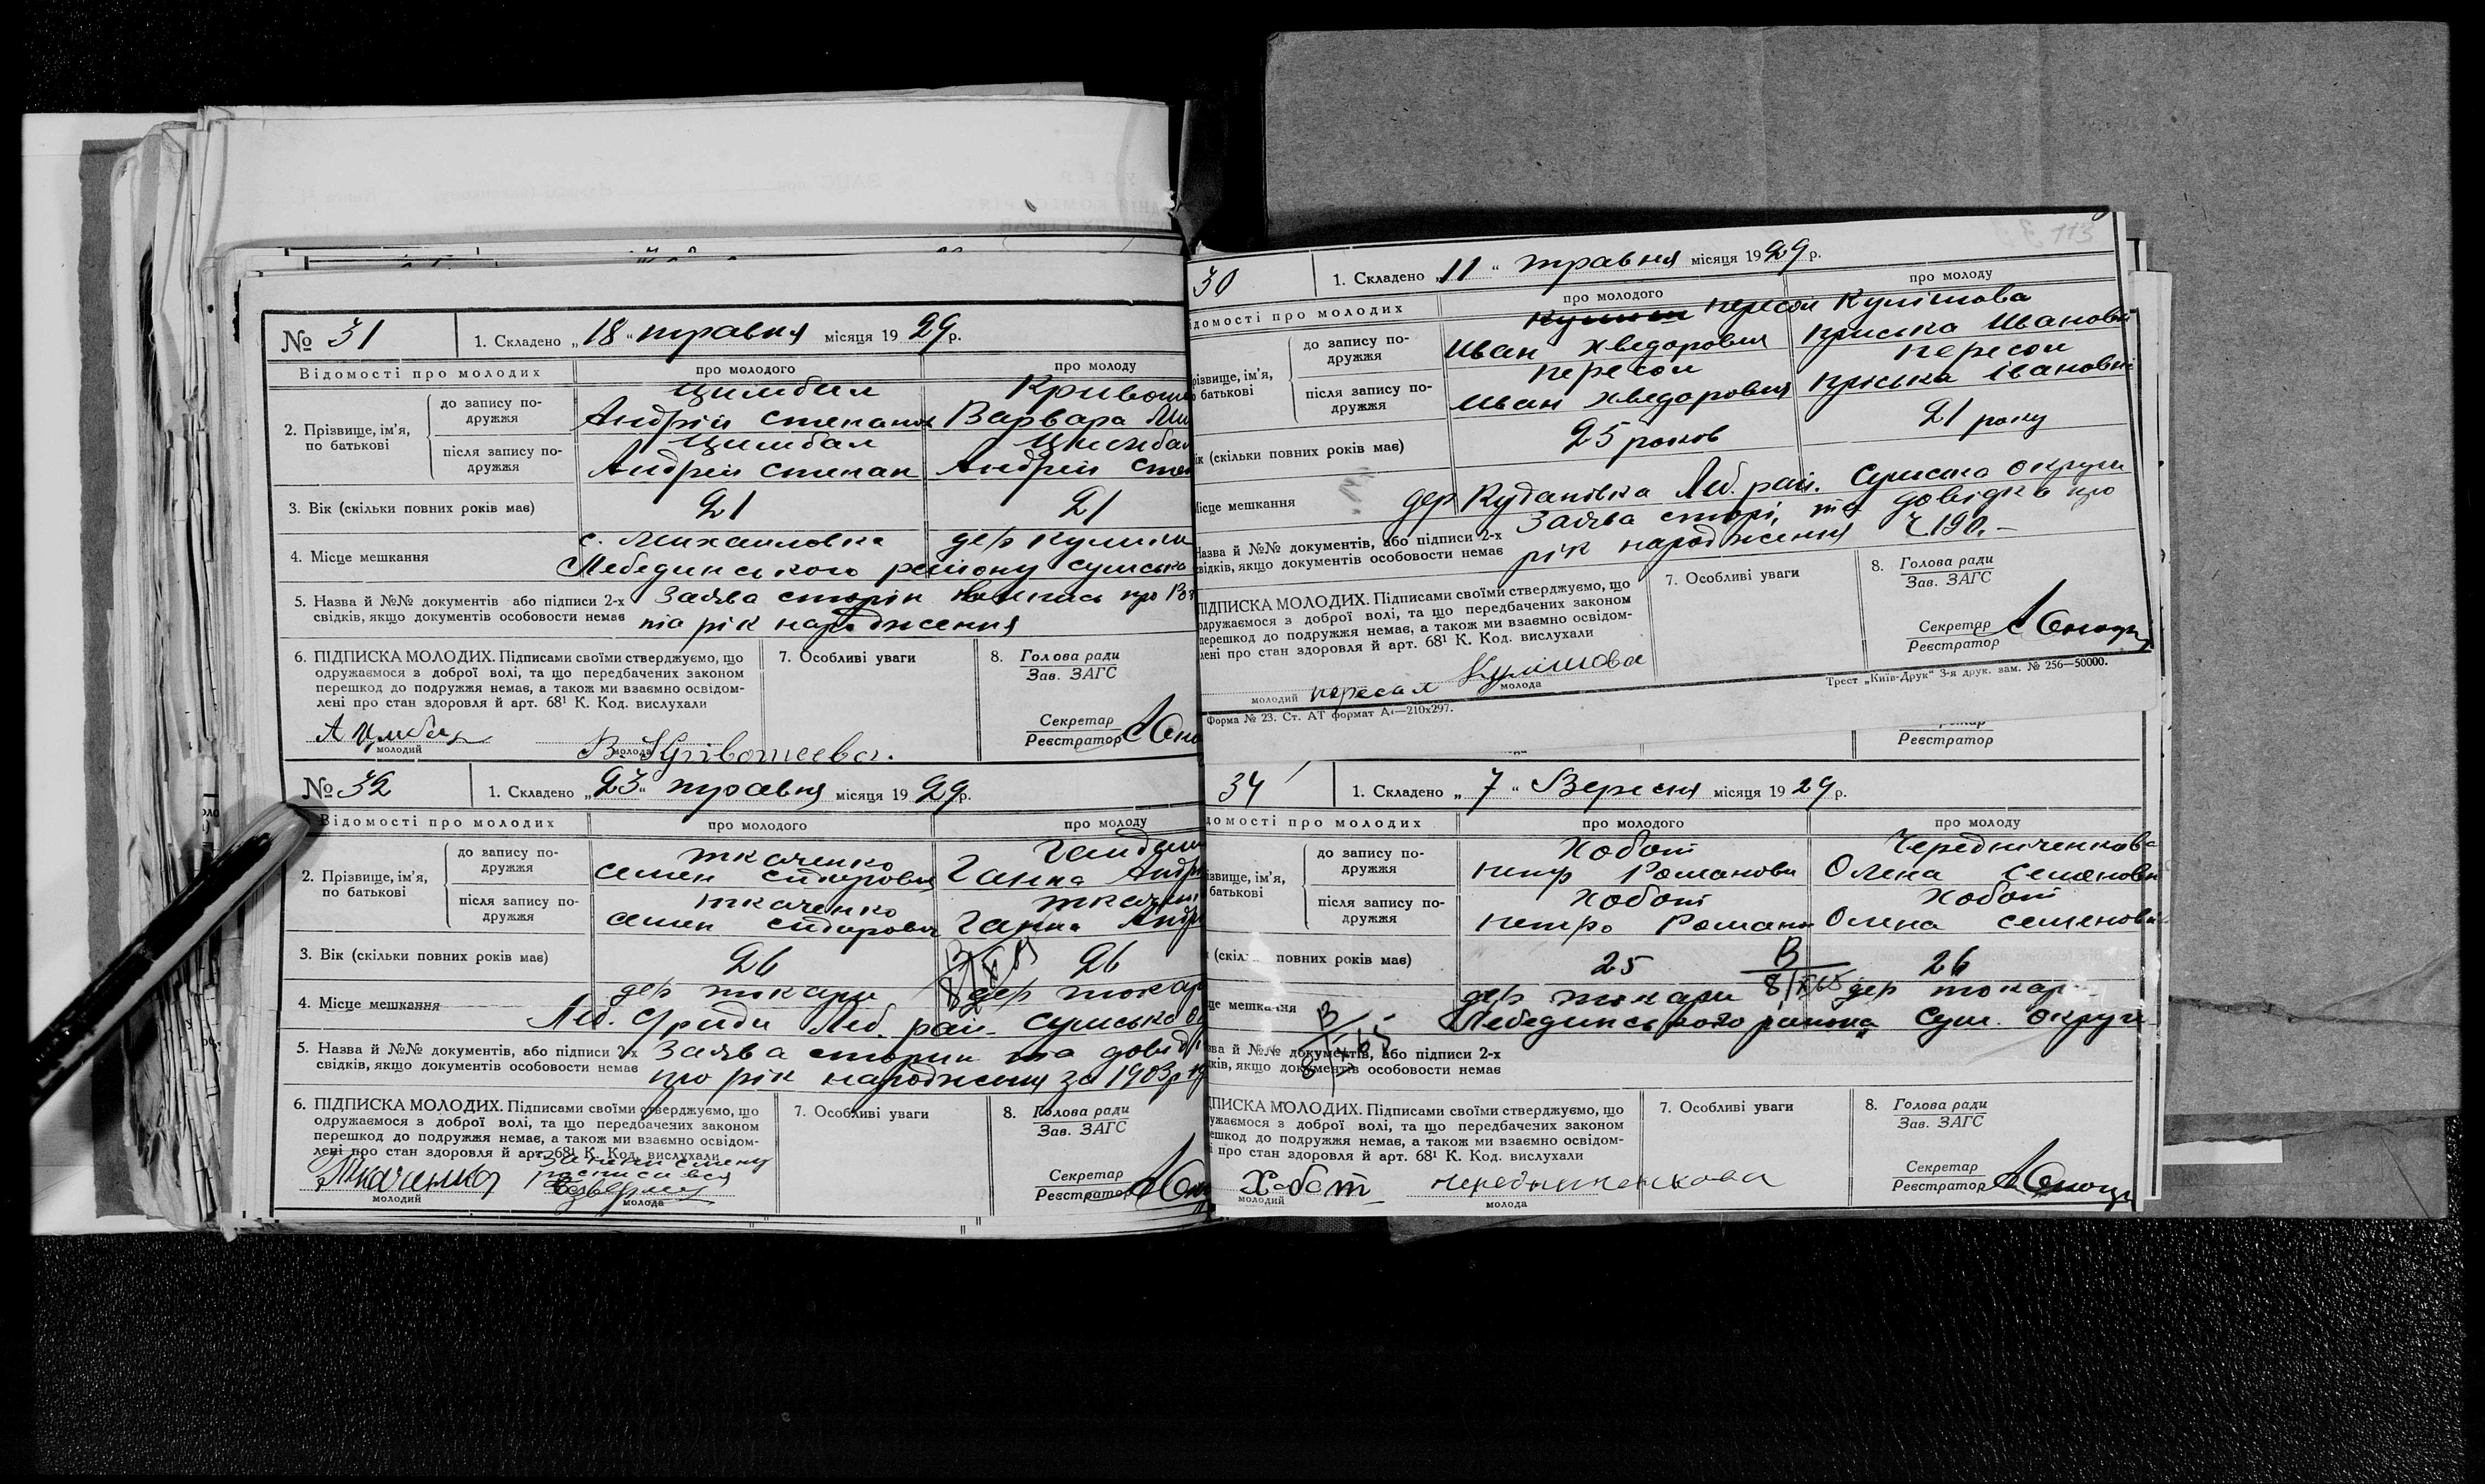 № 31 1. Складено „18" травня місяця 1929р.
Відомості про молодих про молодого про молоду
2. Прізвище, ім'я, по батькові
до запису по-
дружжя
Цимбал
Андрій Степанов
Кривоше
Варвара Ми
після запису по-
дружжя
Цимбал
Андрей Степан
Цимбал
Андрей Степ
3. Вік (скільки повних років має) 21 21
4. Місце мешкання с. Михаиловка дер Кулички
Лебединського району Сумсько
5. Назва й №№ документів або підписи 2-х
свідків, якщо документів особовости немає
Заява сторін про
та рік народження
6. ПІДПИСКА МОЛОДИХ. Підписами своїми стверджуємо, що
одружаємося з доброї волі, та що передбачених законом
перешкод до подружжя немає, а також ми взаємно освідом-
лені про стан здоровля й арт. 68¹ К. Код. вислухали
А Цимбал
молодий
В. Кривошеева.
молода
7. Особливі уваги
8. Голова ради
Зав. ЗАГС
Секретар
Реєстратор
№ 32 1. Складено „23" травня місяця 1929р.
Відомості про молодих про молодого про молоду
2. Прізвище, ім'я,
по батькові
до запису по-
дружжя
Ткаченко
Семен Сидорович
Ганна Андр
після запису по-
дружжя
Ткаченко
Семен Сидорович
Ткачен
Ганна Андр
3. Вік (скільки повних років має) 26 26
В
8/X 65
4. Місце мешкання дер Токари дер Токар
Леб. С/ради Леб. рай. Сумсько о
5. Назва й №№ документів, або підписи 2-х
свідків, якщо документів особовости немає
Заява сторин та довідк
про рік народження за 1903р
6. ПІДПИСКА МОЛОДИХ. Підписами своїми стверджуємо, що
одружаємося з доброї волі, та що передбачених законом
перешкод до подружжя немає, а також ми взаємно освідом-
лені про стан здоровля й арт. 68¹ К. Код. вислухали
Ткаченко
молодий
расписався
молода
7. Особливі уваги
8. Голова ради
Зав. ЗАГС
Секретар
Реєстратор
113
30 1. Складено „11" травня місяця 1929р.
ідомості про молодих про молодого про молоду
різвище, ім'я,
о батькові
до запису по-
дружжя
Пересол
Иван Хведорович
Кулішова
Приська Ивановн
після запису по-
дружжя
Пересол
Иван Хведорович
Пересол
Пріська Івановні
ік (скільки повних років має) 25 роков 21 року
Місце мешкання дер Кудановка Леб. рай. Сумсько округи
Назва й №№ документів, або підписи 2-х
свідків, якщо документів особовости немає
Заява сторі, та довідка про
рік народження
ПІДПИСКА МОЛОДИХ. Підписами своїми стверджуємо, що
одружаємося з доброї волі, та що передбачених законом
перешкод до подружжя немає, а також ми взаємно освідом-
лені про стан здоровля й арт. 68¹ К. Код. вислухали
молодий Пересол
Кулішова
молода
7. Особливі уваги
8. Голова ради
Зав. ЗАГС
Секретар
Реєстратор
Форма № 23. Ст. АТ формат А₄—210х297.
Трест „Київ-Друк" 3-я друк. зам. № 256—50000.
Реєстратор
34 1. Складено „7" Вересня місяця 1929р.
домості про молодих про молодого про молоду
ізвище, ім'я,
батькові
до запису по-
дружжя
Хобот
Петр Романови
Чередниченкова
Олена Семеновн
після запису по-
дружжя
Хобот
Петро Романи
Хобот
Олена Семеновн
(скіл повних років має) 25 26
В
8/X 65
це мешкання дер Токари дер Токар
Лебединського района Сум. округи
В
8/X 65
зва й №№ документів, або підписи 2-х
ків, якщо документів особовости немає
ПИСКА МОЛОДИХ. Підписами своїми стверджуємо, що
ужаємося з доброї волі, та що передбачених законом
ешкод до подружжя немає, а також ми взаємно освідом-
і про стан здоровля й арт. 68¹ К. Код. вислухали
Хобот
молодий
Чередниченкова
молода
7. Особливі уваги
8. Голова ради
Зав. ЗАГС
Секретар
Реєстратор